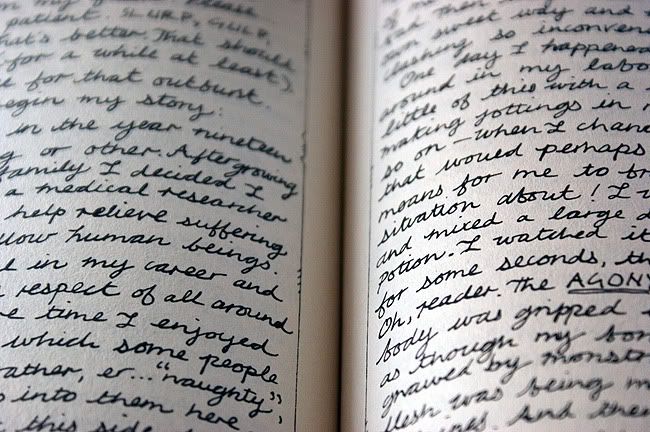 patient. SLURP, GULP,
that's better. That should
for a while at least).
for that outburst.
begin my story:
in the year nineteen
or other. After growing
family I decided I
a medical researcher
help relieve suffering
human beings.
in my career and
respect of all around
time I enjoyed
which some people
rather, er... "naughty",
into them here
this side
sweet way and
clashing so
One day I happened
around in my
little of this with a
making jottings in
so on — when I
that would perhaps
means for me to
situation about! I
and mixed a large
potion. I watched it
for some seconds,
Oh, reader. The AGONY
body was gripped
as though my
gnawed by
flesh was being
And